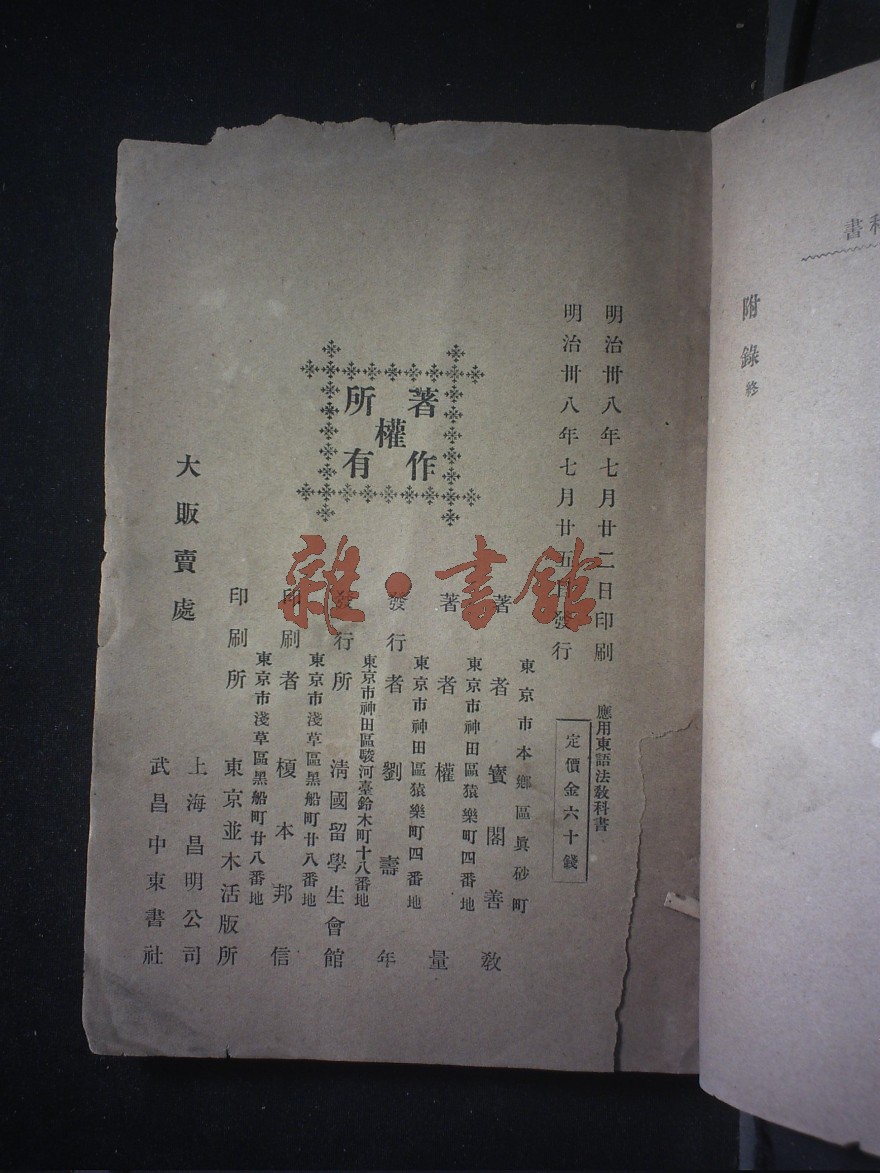 科書
附錄終
明治卅八年七月廿二日印刷
明治卅八年七月廿五日發行
應用東語法敎科書
定價金六十錢
東京市本鄕區眞砂町
著者 寳閣善敎
東京市神田區猿樂町四番地
著者 權量
東京市神田區猿樂町四番地
發行者 劉壽年
東京市神田區駿河臺鈴木町十八番地
發行所 淸國留學生會館
東京市淺草區黑船町廿八番地
印刷者 榎本邦信
東京市淺草區黑船町廿八番地
印刷所 東京並木活版所
著作
權
所有
大販賣處
上海昌明公司
武昌中東書社
雜·書館